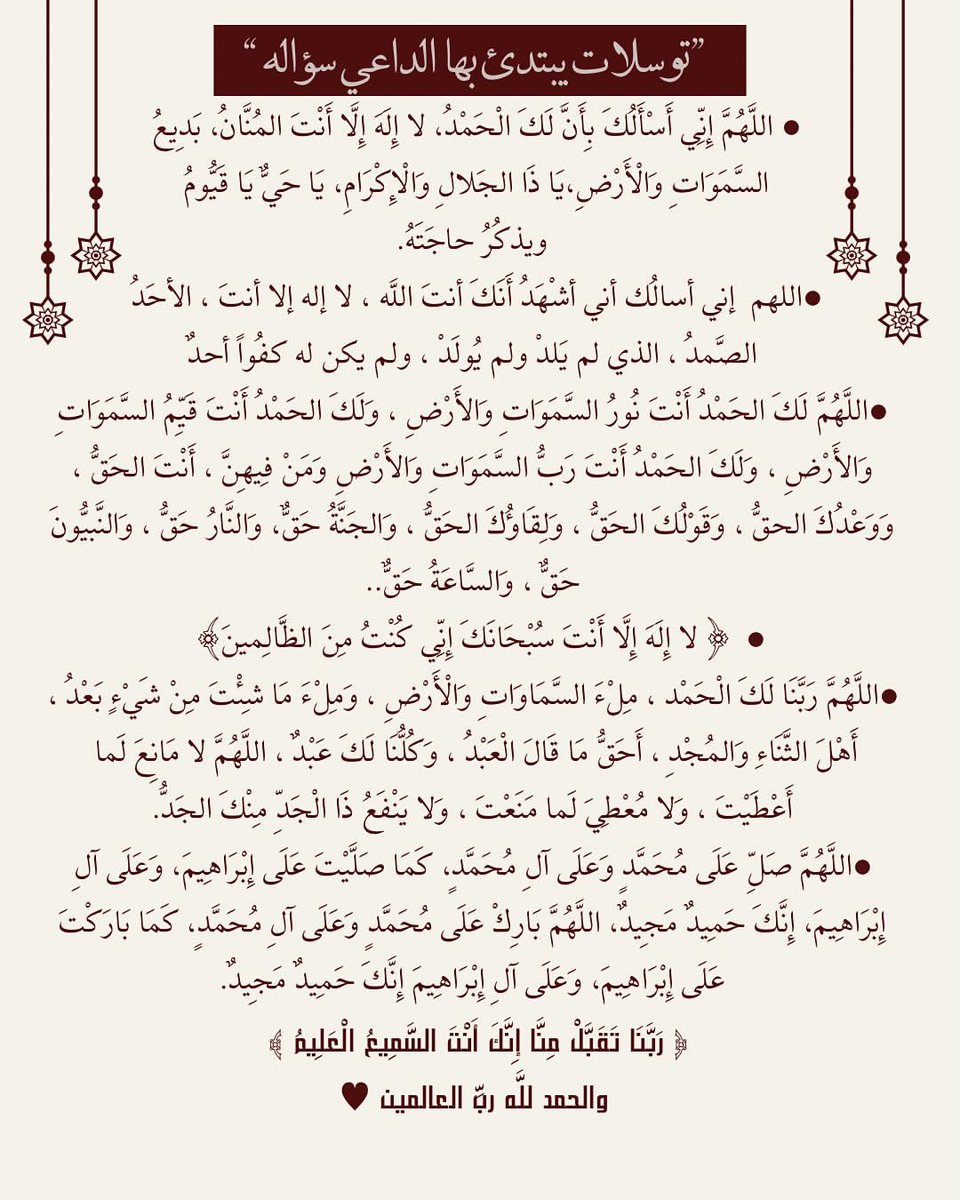 ”توسلات يبتدئ بها الداعي سؤاله“
● اللَّهُمَّ إِنِّي أَسْأَلُكَ بِأَنَّ لَكَ الْحَمْدُ، لا إِلَهَ إِلَّا أَنْتَ المُنَّانُ، بَدِيعُ
السَّمَوَاتِ وَالْأَرْضِ،يَا ذَا الجَلالِ وَالْإِكْرَامِ، يَا حَيُّ يَا قَيُّومُ
ويذكُرُ حاجَتَهُ.
●اللهم إني أسالُك أني أشْهَدُ أَنَكَ أنتَ اللَّه ، لا إله إلا أنتَ ، الأحَدُ
الصَّمدُ ، الذي لم يَلدْ ولم يُولَدْ ، ولم يكن له كفُواً أحدٌ
●اللَّهُمَّ لَكَ الحَمْدُ أَنْتَ نُورُ السَّمَوَاتِ وَالأَرْضِ ، وَلَكَ الحَمْدُ أَنْتَ قَيِّمُ السَّمَوَاتِ
وَالأَرْضِ ، وَلَكَ الحَمْدُ أَنْتَ رَبُّ السَّمَوَاتِ وَالأَرْضِ وَمَنْ فِيهِنَّ ، أَنْتَ الحَقُّ ،
وَوَعْدُكَ الحقُّ ، وَقَوْلُكَ الحَقُّ ، وَلِقَاؤُكَ الحَقُّ ، وَالجَنَّةُ حَقٌّ، وَالنَّارُ حَقُّ ، وَالنَّبيُّونَ
حَقٌّ ، وَالسَّاعَةُ حَقٌّ..
● ﴿ لا إِلَهَ إِلَّا أَنْتَ سُبْحَانَكَ إِنِّي كُنْتُ مِنَ الظَّالِمِينَ﴾
●اللَّهُمَّ رَبَّنَا لَكَ الْحَمْد ، مِلْءَ السَّمَاوَاتِ وَالْأَرْضِ ، وَمِلْءَ مَا شئِْتَ مِنْ شَيْءٍ بَعْدُ ،
أَهْلَ الثَّنَاءِ وَالمُجْدِ ، أَحَقُّ مَا قَالَ الْعَبْدُ ، وَكُلُّنَا لَكَ عَبْدٌ ، اللَّهُمَّ لا مَانِعَ لَما
أَعْطَيْتَ ، وَلا مُعْطِيَ لَما مَنَعْتَ ، وَلا يَنْفَعُ ذَا الْجَدِّ مِنْكَ الجَدُّ.
●اللَّهُمَّ صَلِّ عَلَى مُحَمَّدٍ وَعَلَى آلِ مُحَمَّدٍ، كَمَا صَلَّيْتَ عَلَى إِبْرَاهِيمَ، وَعَلَى آلِ
إِبْرَاهِيمَ، إِنَّكَ حَمِيدٌ مَجِيدٌ، اللَّهُمَّ بَارِكْ عَلَى مُحَمَّدٍ وَعَلَى آلِ مُحَمَّدٍ، كَمَا بَارَكْتَ
عَلَى إِبْرَاهِيمَ، وَعَلَى آلِ إِبْرَاهِيمَ إِنَّكَ حَمِيدٌ مَجِيدٌ.
﴿ رَبَّنَا تَقَبَّلْ مِنَّا إِنَّكَ أَنْتَ السَّمِيعُ الْعَلِيمُ ﴾
والحمد للَّه ربِّ العالمين ♥